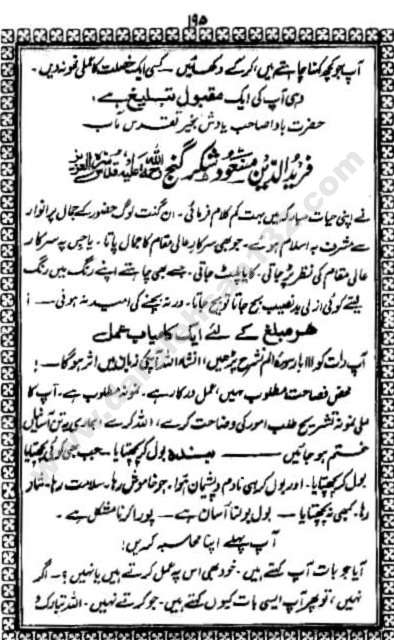 ۱۹۵
آپ جو کچھ کہنا چاہتے ہیں، کر کے دکھائیں ۔ کسی ایک خصلت کا عملی نمونہ دیں ۔
وہی آپ کی ایک مقبول تبلیغ ہے ،
حضرت باوا صاحب یادش بخیر تقدس مآب
فریدالدین مسعود شکر گنج
نے اپنی حیات مبارکہ میں بہت کم کلام فرمائی ۔ ان گنت لوگ حضور کے جمال پرانوار
سے مشرف بہ اسلام ہوئے ۔ جو بھی سرکار عالی مقام کا جمال پاتا ۔ یا جس پہ سرکار
عالی مقام کی نظر پڑ جاتی ۔ کایا پلٹ جاتی ۔ جسے بھی چاہتے اپنے رنگ میں رنگ
لیتے کوئی ازلی بدنصیب بچ جاتا تو بچ جاتا ۔ ورنہ بچنے کی امید نہ ہوتی ۔
ہر مبلغ کے لئے ایک کامیاب عمل
آپ رات کو ۱۱۱ بار سورۃ الم نشرح پڑھیں ، انشاء اللہ آپکی زبان میں اثر ہوگا ۔ !
محض فصاحت مطلوب نہیں ، عمل درکار ہے ۔ نمونہ مطلوب ہے ۔ آپ کا
عملی نمونہ تشریح طلب امور کی وضاحت کرے ، اللہ کرے ہماری تن آسانیاں
ختم ہو جائیں ۔ بندہ بول کر پچھتایا ۔ جب بھی کوئی پچھتایا
بول کر پچھتایا ۔ اور بول کر ہی نادم و پشیمان ہوا ۔ جو خاموش رہا ۔ سلامت رہا ۔ شاد
رہا ۔ کبھی نہ پچھتایا ۔ بول بولنا آسان ہے ۔ پورا کرنا مشکل ہے ۔
آپ پہلے اپنا محاسبہ کریں !
آیا جو بات آپ کہتے ہیں ۔ خود بھی اس پہ عمل کرتے ہیں یا نہیں ؟ ۔ اگر
نہیں ، تو پھر آپ ایسی بات کیوں کہتے ہیں ۔ جو کرتے نہیں ۔ اللہ تبارک و